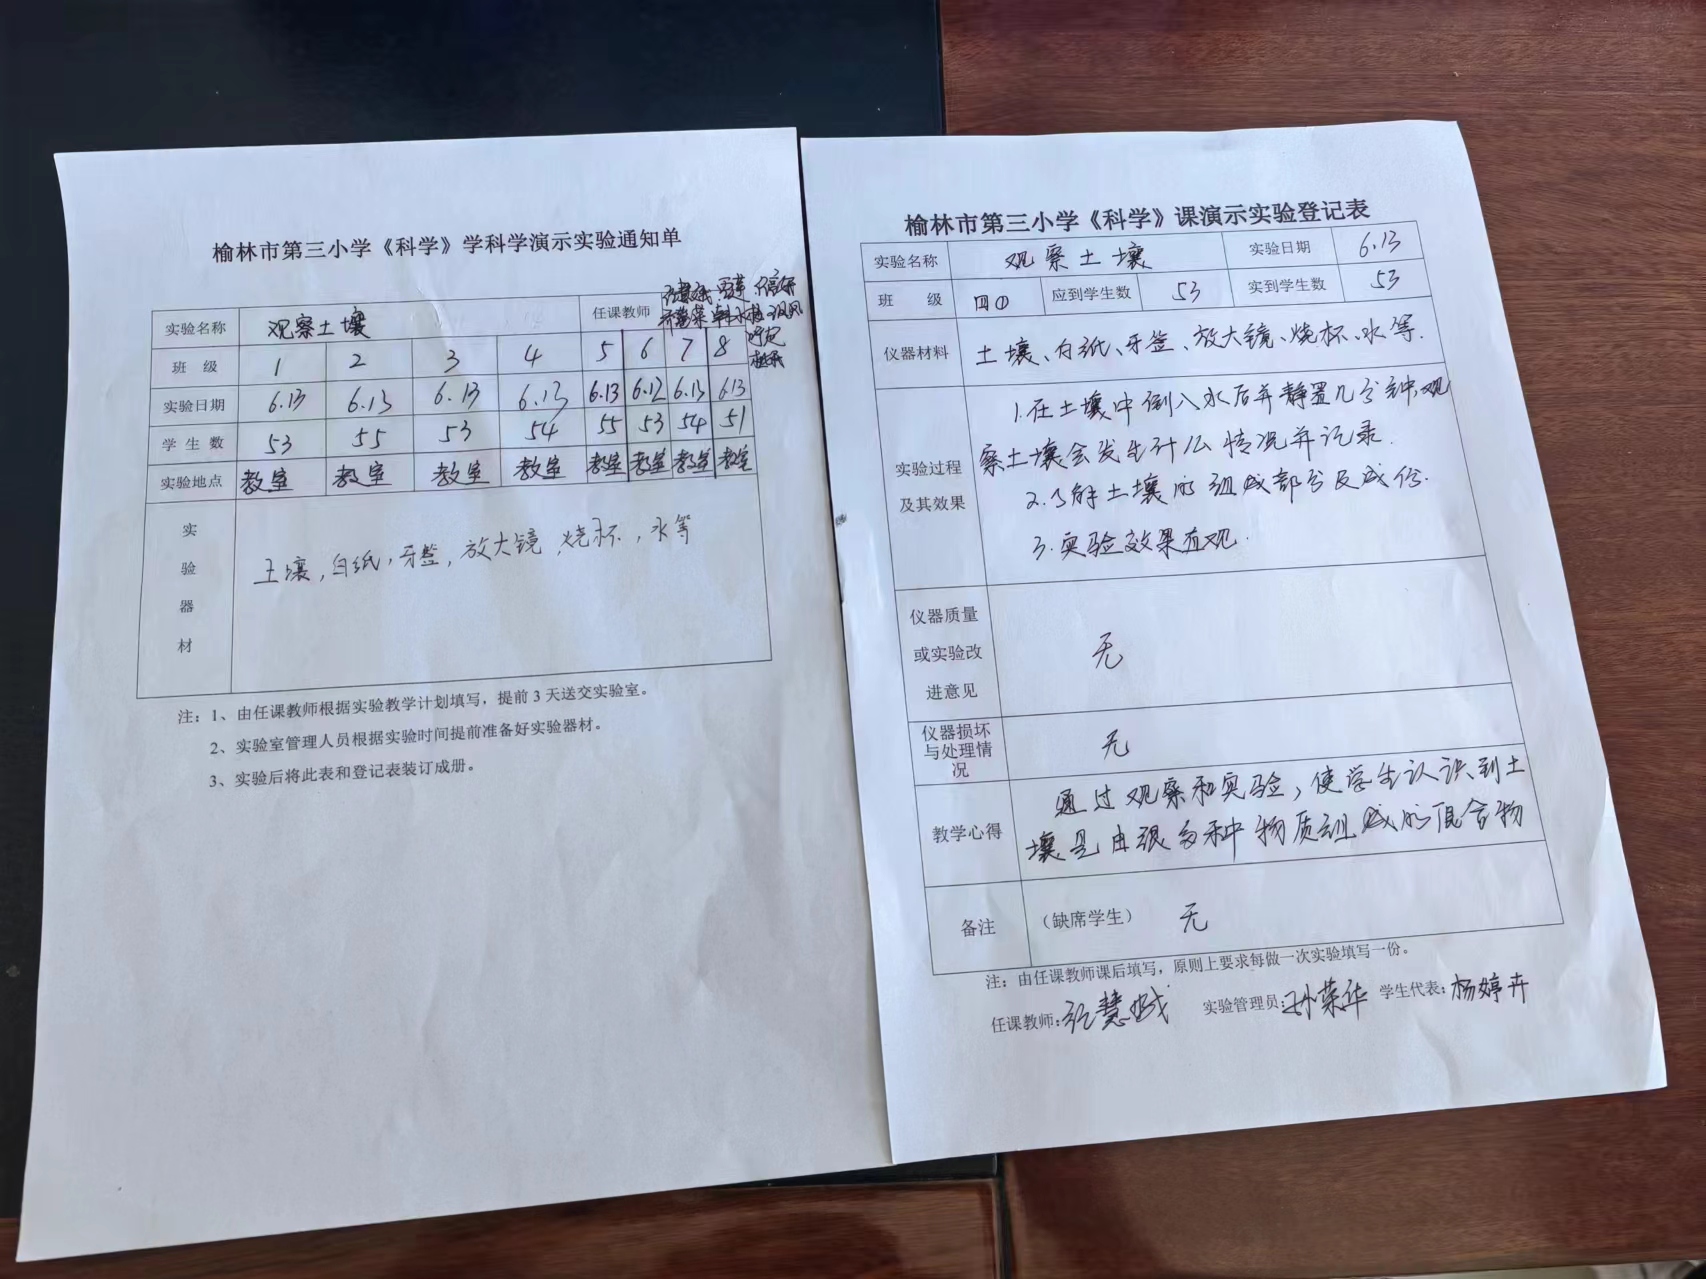 榆林市第三小学《科学》学科学演示实验通知单
实验名称 观察土壤 任课教师
班 级 1 2 3 4 5 6 7 8
实验日期 6.13 6.13 6.13 6.13 6.13 6.12 6.13 6.13
学 生 数 53 55 53 54 55 53 54 51
实验地点 教室 教室 教室 教室 教室 教室 教室 教室
实验器材 土壤,白纸,牙签,放大镜,烧杯,水等
注:1、由任课教师根据实验教学计划填写,提前3天送交实验室。
2、实验室管理人员根据实验时间提前准备好实验器材。
3、实验后将此表和登记表装订成册。
榆林市第三小学《科学》课演示实验登记表
实验名称 观察土壤 实验日期 6.13
班 级 四① 应到学生数 53 实到学生数 53
仪器材料 土壤、白纸、牙签、放大镜、烧杯、水等.
实验过程
及其效果
1.在土壤中倒入水后并静置几分钟,观
察土壤会发生什么情况并记录.
2.了解土壤的组成部分及成份.
3.实验效果直观.
仪器质量
或实验改
进意见
无
仪器损坏
与处理情
况
无
教学心得
通过观察和实验,使学生认识到土
壤是由很多种物质组成的混合物
备注 (缺席学生) 无
注:由任课教师课后填写,原则上要求每做一次实验填写一份。
任课教师: 实验管理员:孙荣华 学生代表:杨婷卉